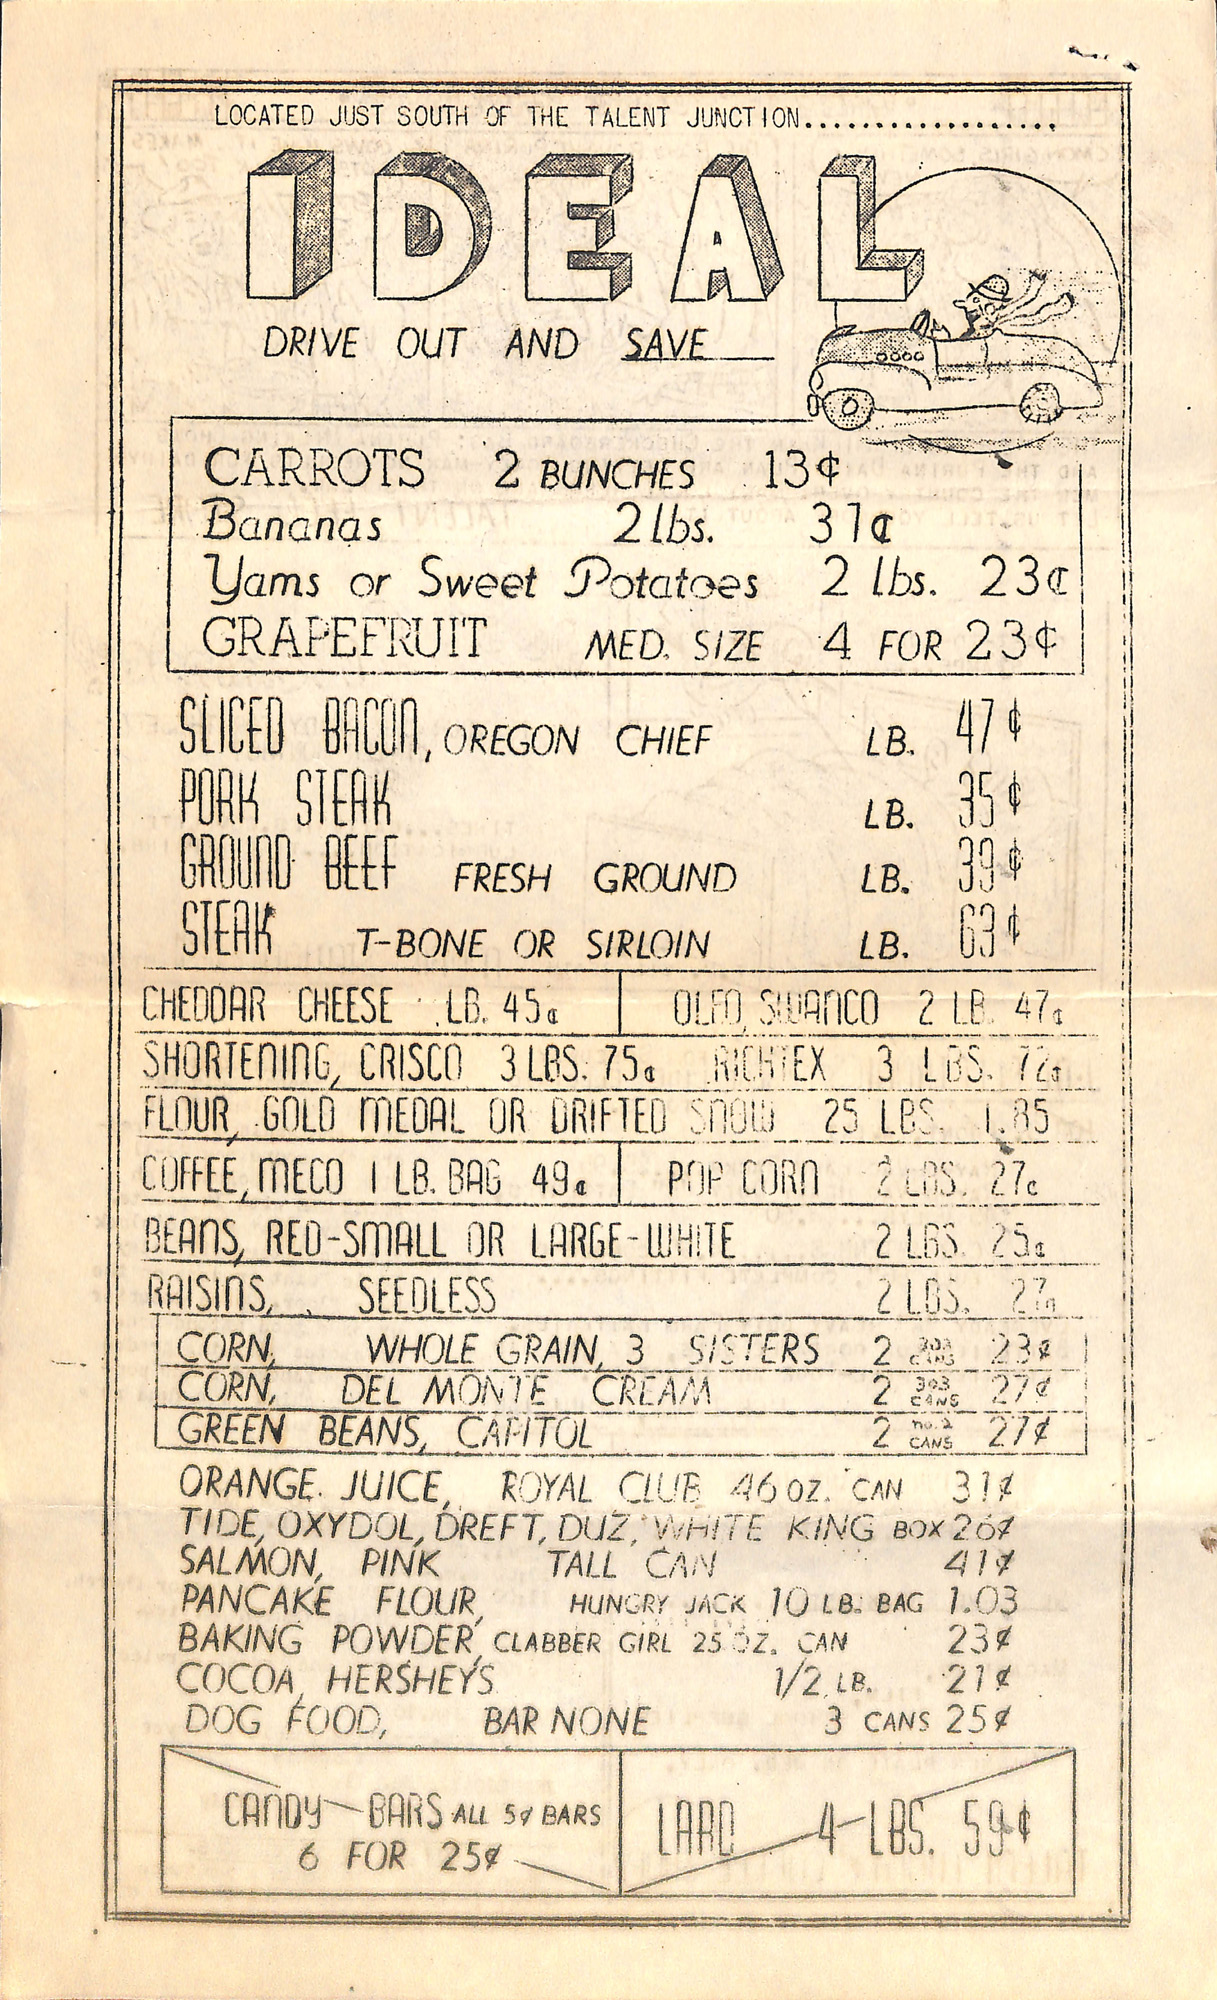 LOCATED JUST SOUTH OF THE TALENT JUNCTION...................
IDEAL
DRIVE OUT AND SAVE
CARROTS 2 BUNCHES 13¢
Bananas 2 lbs. 31¢
Yams or Sweet Potatoes 2 lbs. 23¢
GRAPEFRUIT MED. SIZE 4 FOR 23¢
SLICED BACON, OREGON CHIEF LB. 47¢
PORK STEAK LB. 35¢
GROUND BEEF FRESH GROUND LB. 39¢
STEAK T-BONE OR SIRLOIN LB. 63¢
CHEDDAR CHEESE LB. 45¢ OLEO, SWANCO 2 LB. 47¢
SHORTENING, CRISCO 3 LBS. 75¢ RICHTEX 3 LBS. 72¢
FLOUR, GOLD MEDAL OR DRIFTED SNOW 25 LBS. 1.85
COFFEE, MECO 1 LB. BAG 49¢ POP CORN 2 LBS. 27¢
BEANS, RED-SMALL OR LARGE-WHITE 2 LBS. 25¢
RAISINS, SEEDLESS 2 LBS. 27¢
CORN, WHOLE GRAIN, 3 SISTERS 2 303 CANS 23¢
CORN, DEL MONTE CREAM 2 303 CANS 27¢
GREEN BEANS, CAPITOL 2 no. 2 CANS 27¢
ORANGE JUICE, ROYAL CLUB 46 OZ. CAN 31¢
TIDE, OXYDOL, DREFT, DUZ, WHITE KING BOX 26¢
SALMON, PINK TALL CAN 41¢
PANCAKE FLOUR, HUNGRY JACK 10 LB. BAG 1.03
BAKING POWDER, CLABBER GIRL 25 OZ. CAN 23¢
COCOA, HERSHEY'S 1/2 LB. 21¢
DOG FOOD, BAR NONE 3 CANS 25¢
CANDY BARS ALL 5¢ BARS
6 FOR 25¢
LARD 4 LBS. 59¢